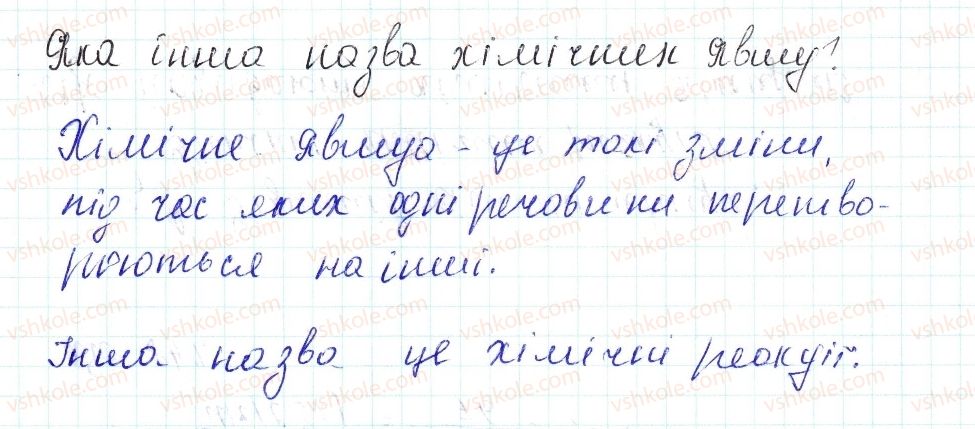 Яка інша назва хімічних явищ?
Хімічне явища - це такі зміни,
під час яких одні речовини перетво-
рюються на інші.
Інша назва це хімічні реакції.